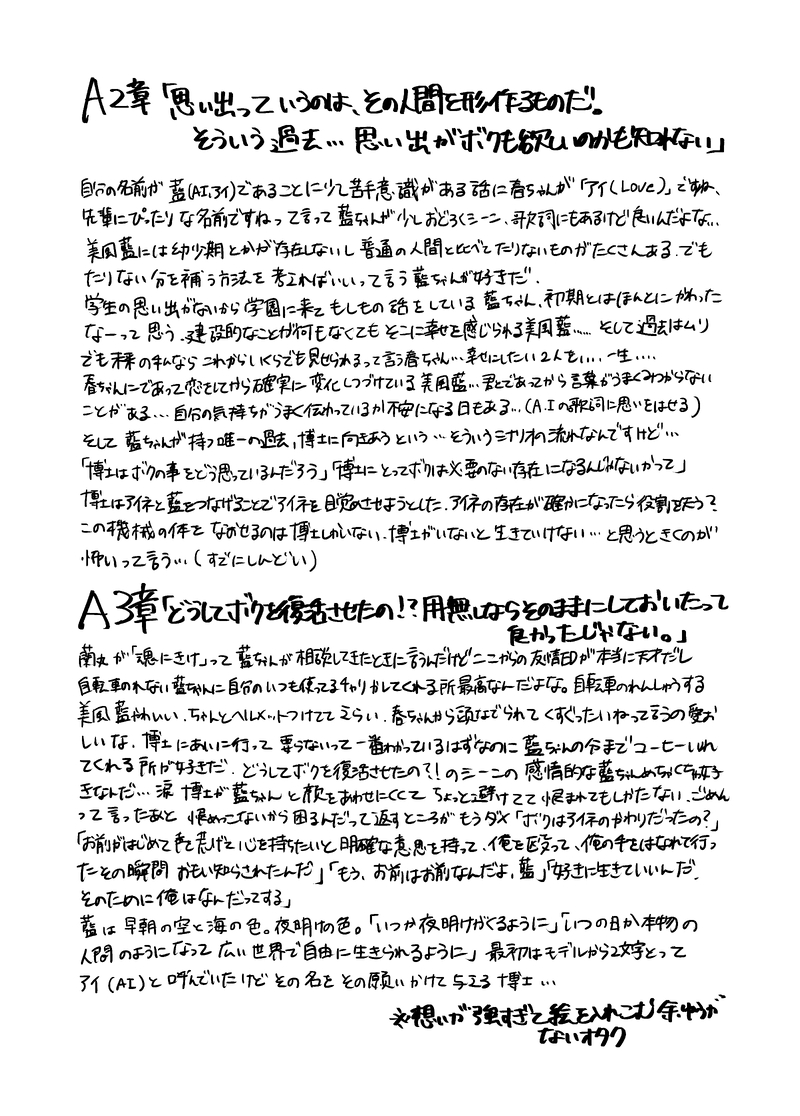 A2章「思い出っていうのは、その人間を形作るものだ。
そういう過去… 思い出がボクも欲しいのかも知れない」
自分の名前が藍(AI,アイ)であることに少し苦手意識がある話に春ちゃんが「アイ(Love)」ですね、
先輩にぴったりな名前ですねって言って藍ちゃんが少しおどろくシーン、歌詞にもあるけど良いんだよな…
美風藍には幼少期とかが存在しないし普通の人間と比べてたりないものがたくさんある.でも
たりない分を補う方法を考えればいいって言う藍ちゃんが好きだ.
学生の思い出がないから学園に来てもしもの話をしている藍ちゃん、初期とはほんとにかわった
なーって思う.建設的なことが何もなくてもそこに幸せを感じられる美風藍…… そして過去はムリ
でも未来の私ならこれからいくらでも見せられるって言う春ちゃん…幸せにしたい2人を…. 一生….
春ちゃんにであって恋をしてから確実に変化しつづけている美風藍…君とであってから言葉がうまくみつからない
ことがある…自分の気持ちがうまく伝わっているか不安になる日もある…(A.Iの歌詞に思いをはせる)
そして藍ちゃんが持つ唯一の過去,博士に向きあうという…そういうシナリオの流れなんですけど…
「博士はボクの事をどう思っているんだろう」「博士にとってボクは必要のない存在になるんじゃないかって」
博士はアイネと藍をつなげることでアイネを目覚めさせようとした.アイネの存在が確かになったら役割を失う?
この機械の体をなおせるのは博士しかいない.博士がいないと生きていけない…と思うときくのが
怖いって言う…(すでにしんどい)
A3章「どうしてボクを復活させたの!?用無しならそのままにしておいたって
良かったじゃない。」
蘭丸が「魂にきけ」って藍ちゃんが相談してきたときに言うんだけどここからの友情印が本当に天才だし
自転車のれない藍ちゃんに自分のいつも使ってるチャリかしてくれる所最高なんだよな。自転車のれんしゅうする
美風藍かわいい.ちゃんとヘルメットつけててえらい.春ちゃんから頭なでられてくすぐったいねって言うの愛お
しいな.博士にあいに行って要らないって一番わかっているはずなのに藍ちゃんの今までコーヒーいれ
てくれる所が好きだ.どうしてボクを復活させたの?!のシーンの感情的な藍ちゃんめちゃくちゃ好
きなんだ…涙 博士が藍ちゃんと顔をあわせにくくてちょっと避けてて恨まれてもしかたない.ごめん
って言ったあと恨めっこないから困るんだって返すところがもうダメ「ボクはアイネのかわりだったの?」
「お前がはじめて声を荒げて心を持ちたいと明確な意思を持って、俺を殴って、俺の手をはなれて行っ
たその瞬間おもい知らされたんだ」「もう、お前はお前なんだよ,藍」「好きに生きていいんだ.
そのために俺はなんだってする」
藍は早朝の空と海の色。夜明けの色。「いつか夜明けがくるように」「いつの日か本物の
人間のようになって広い世界で自由に生きられるように」最初はモデルから2文字とって
アイ(AI)と呼んでいたけどその名をその願いかけて与える博士…
※想いが強すぎて絵を入れこむ余ゆうが
ないオタク